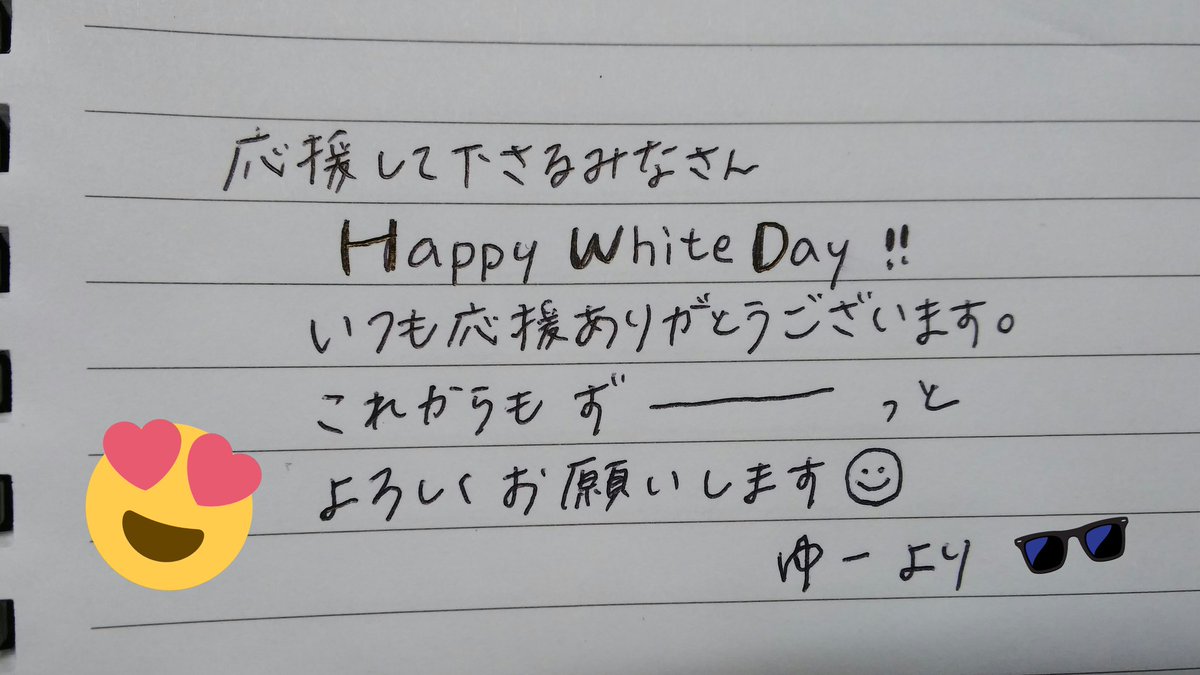 応援して下さるみなさん
Happy White Day !!
いつも応援ありがとうございます。
これからも ず――――っと
よろしくお願いします
ゆーより